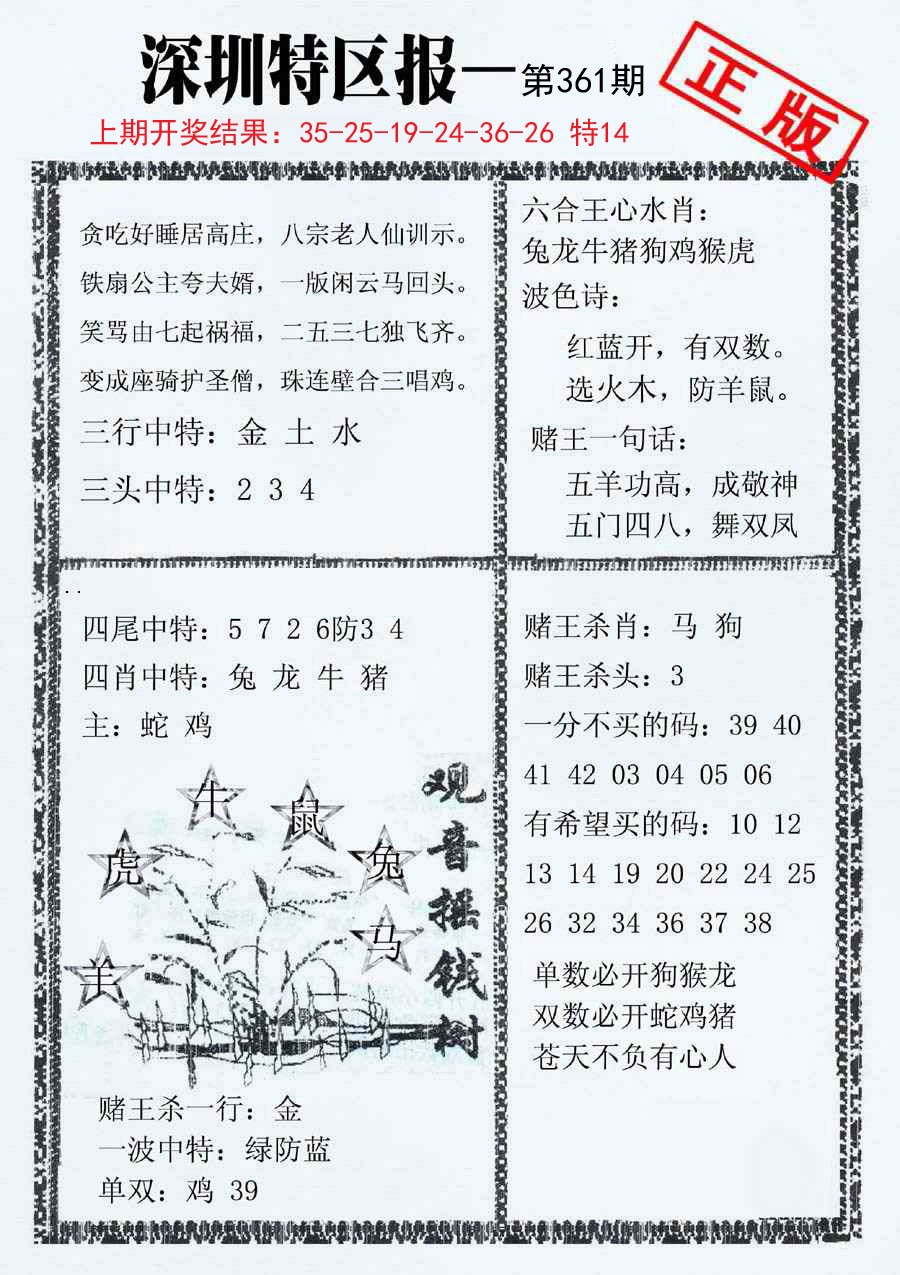 深圳特区报—第361期
正版
上期开奖结果：35-25-19-24-36-26 特14
贪吃好睡居高庄，八宗老人仙训示。
铁扇公主夸夫婿，一版闲云马回头。
笑骂由七起祸福，二五三七独飞齐。
变成座骑护圣僧，珠连壁合三唱鸡。
三行中特：金 土 水
三头中特：2 3 4
六合王心水肖：
兔龙牛猪狗鸡猴虎
波色诗：
红蓝开，有双数。
选火木，防羊鼠。
赌王一句话：
五羊功高，成敬神
五门四八，舞双凤
四尾中特：5 7 2 6防3 4
四肖中特：兔 龙 牛 猪
主：蛇 鸡
牛
鼠
虎
兔
马
羊
观音摇钱树
赌王杀一行：金
一波中特：绿防蓝
单双：鸡 39
赌王杀肖：马 狗
赌王杀头：3
一分不买的码：39 40
41 42 03 04 05 06
有希望买的码：10 12
13 14 19 20 22 24 25
26 32 34 36 37 38
单数必开狗猴龙
双数必开蛇鸡猪
苍天不负有心人